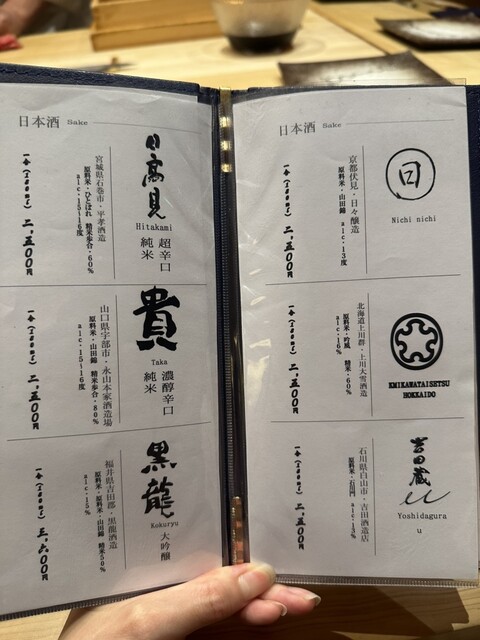 日本酒 Sake
日高見
Hitakami
超辛口
純米
宮城県石巻市・平孝酒造
原料米・ひとめぼれ 精米歩合・60%
alc・15~16度
一合(180ml) 二、五〇〇円
貴
Taka
濃醇辛口
純米
山口県宇部市・永山本家酒造場
原料米・山田錦 精米歩合・80%
alc・15~16度
一合(180ml) 二、五〇〇円
黒龍
Kokuryu
大吟醸
福井県吉田郡・黒龍酒造
原料米・山田錦 精米50%
alc・15%
一合(180ml) 三、六〇〇円
日本酒 Sake
日
Nichi nichi
京都伏見・日々醸造
原料米・山田錦 alc・13度
一合(180ml) 二、五〇〇円
KMIKAWATAISETSU
HOKKAIDO
北海道上川郡・上川大雪酒造
原料米・吟風 精米・60%
alc・16%
一合(180ml) 二、五〇〇円
吉田蔵
u
Yoshidagura
u
石川県白山市・吉田酒造店
原料米・石川門 alc・13%
一合(180ml) 二、五〇〇円